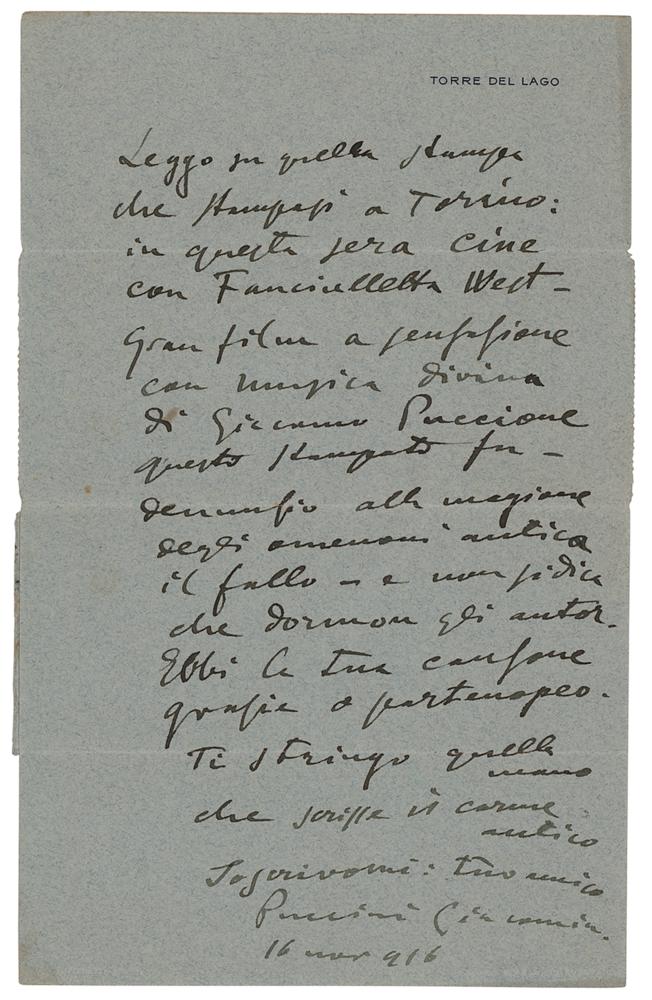 TORRE DEL LAGO
Leggo su quella stampa
che stampasi a Torino:
in questa sera Cine
con Fanciulletta West –
Gran film a sensasione
con musica divina
di Giacomo Puccione
questo stampato fu –
denunsio alla magione
degli omenoni antica
il fallo – e non si dica
che dormon gli autor.
Ebbi la tua cansone
grasie o partenopeo.
Ti stringo quella
mano
che scrisse il carme
antico
Soscrivomi: tuo amico
Puccini Giacomin.
16 nov 916